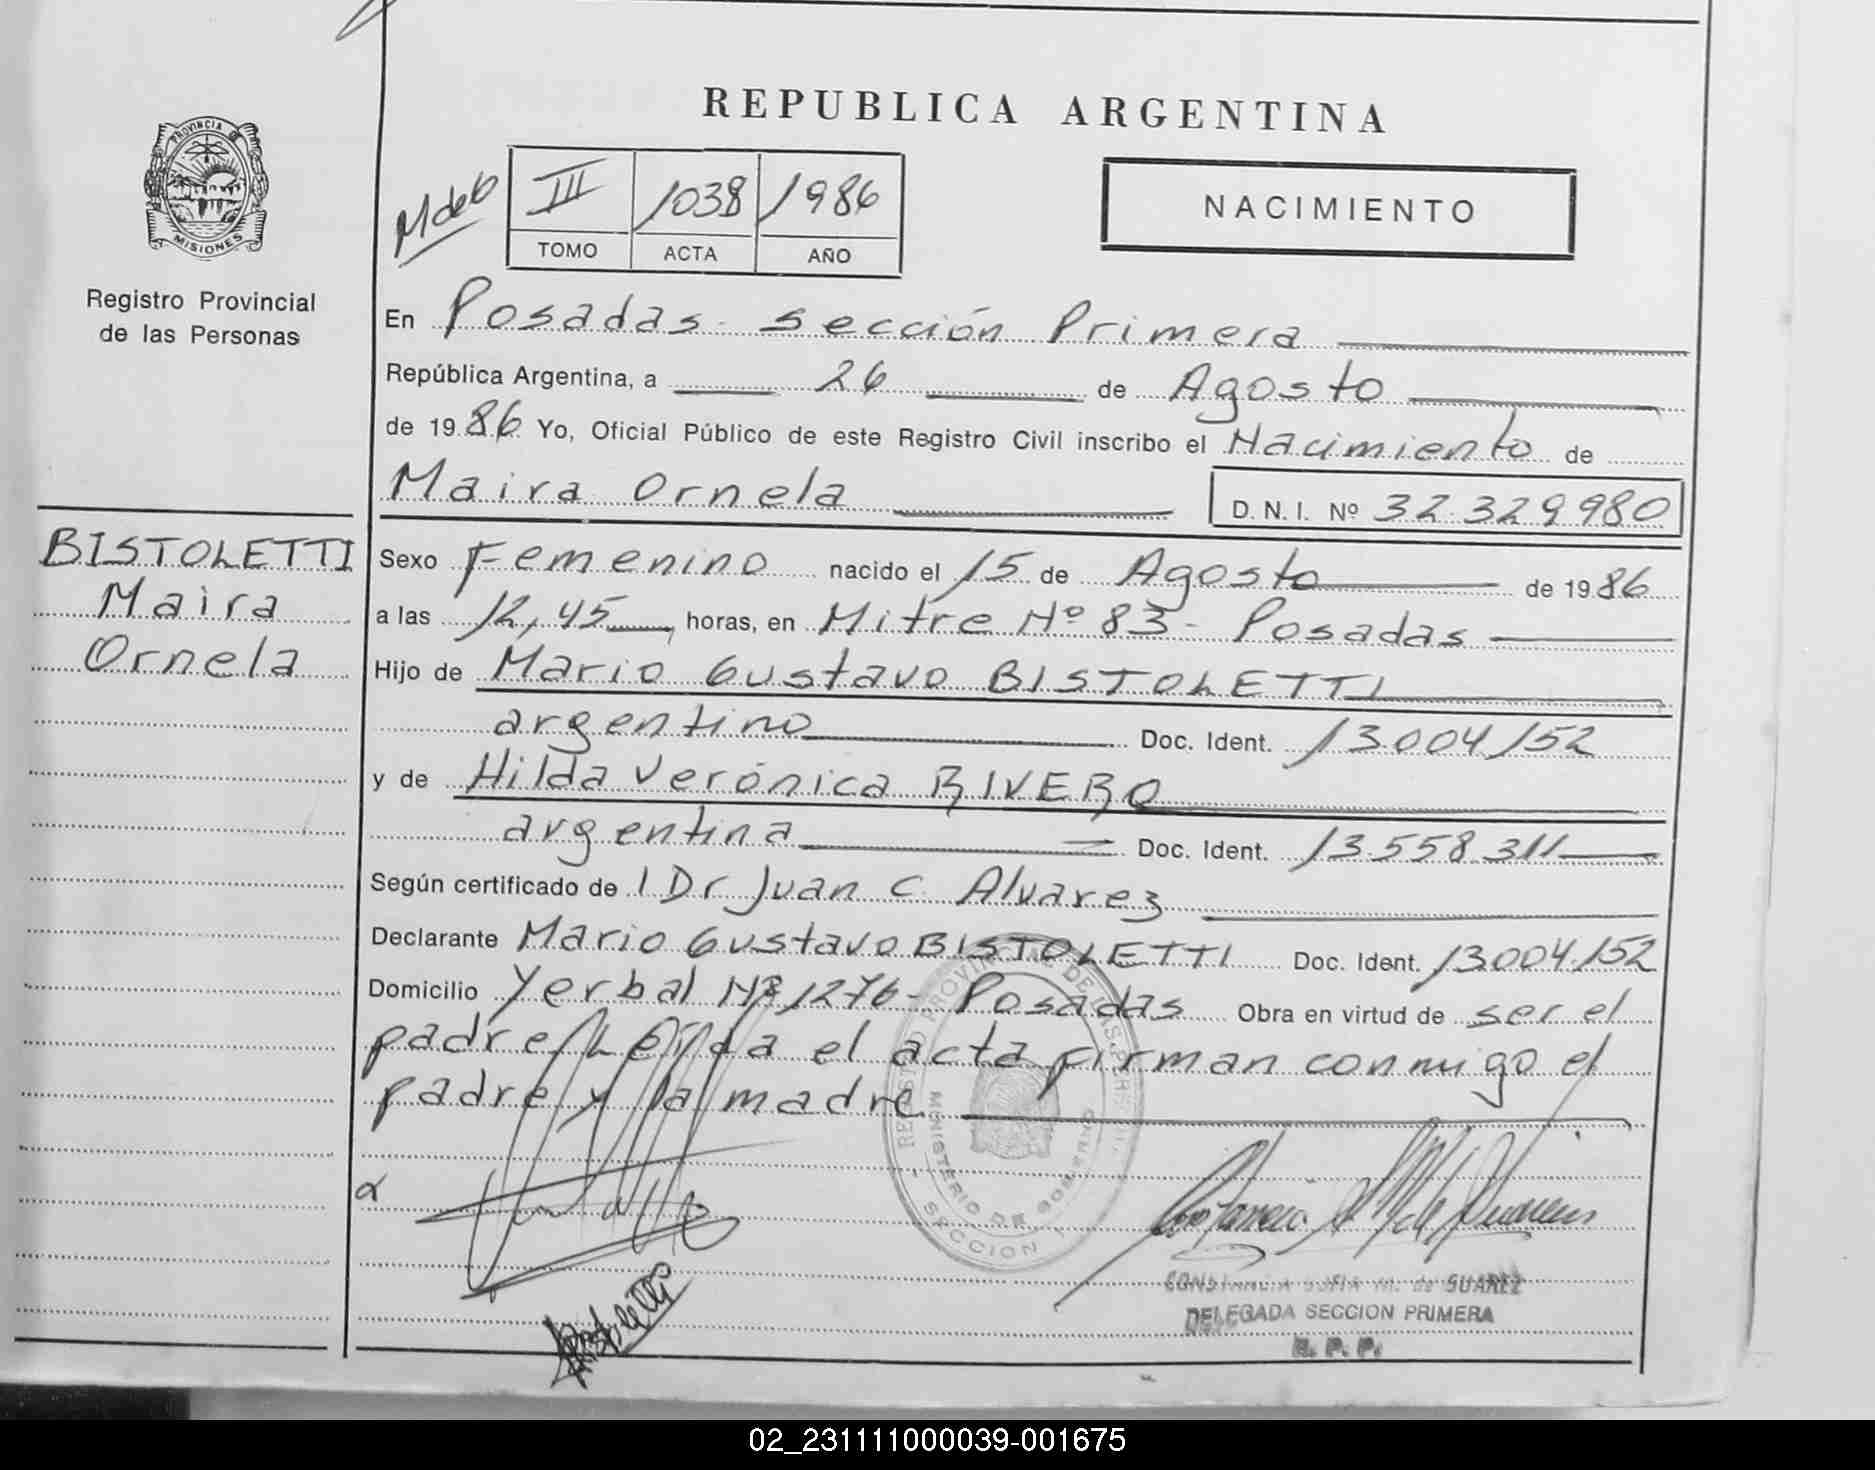 REPUBLICA ARGENTINA
PROVINCIA DE
MISIONES
Registro Provincial
de las Personas
III 1038 1986
TOMO ACTA AÑO
NACIMIENTO
En Posadas - sección Primera
República Argentina, a 26 de Agosto
de 1986 Yo, Oficial Público de este Registro Civil inscribo el Nacimiento de
Maira Ornela D.N.I. Nº 32.329.980
BISTOLETTI
Maira
Ornela
Sexo Femenino nacido el 15 de Agosto de 1986
a las 12,45 horas, en Mitre Nº 83 - Posadas
Hijo de Mario Gustavo BISTOLETTI
argentino Doc. Ident. 13.004.152
y de Hilda Verónica RIVERO
argentina Doc. Ident. 13.558.311
Según certificado de Dr Juan C. Alvarez
Declarante Mario Gustavo BISTOLETTI Doc. Ident. 13.004.152
Domicilio Yerbal Nº 1276 - Posadas Obra en virtud de ser el
padre Leída el acta firman conmigo el
padre y la madre
REGISTRO PROVINCIAL DE LAS PERSONAS
MINISTERIO DE GOBIERNO
SECCION 1
CONSTANCIA SOFIA M. de SUAREZ
DELEGADA SECCION PRIMERA
R. P. P.
02_231111000039-001675